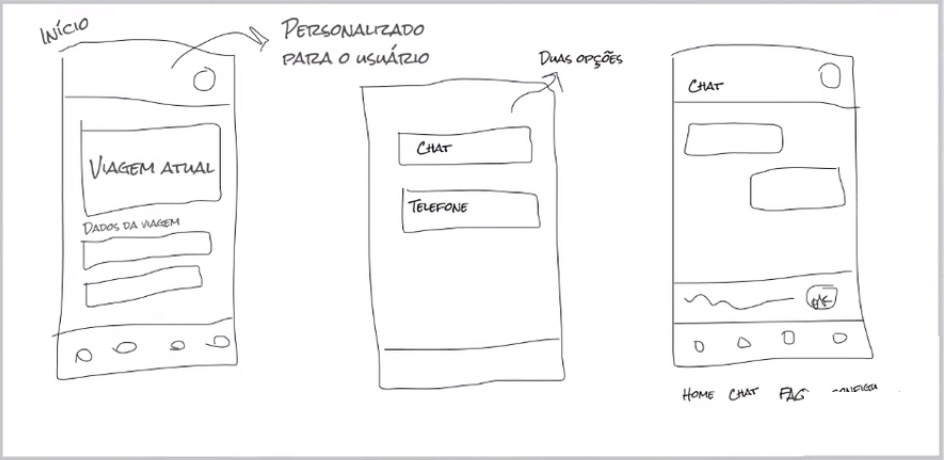 INÍCIO
PERSONALIZADO
PARA O USUÁRIO
VIAGEM ATUAL
DADOS DA VIAGEM
DUAS OPÇÕES
CHAT
TELEFONE
CHAT
HOME CHAT FAQ